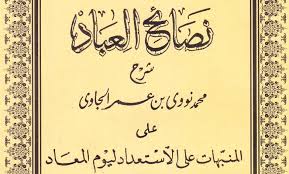 نصائح العباد
شرح
محمد نووي بن عمر الجاوي
على
المنبهات على الاستعداد ليوم المعاد